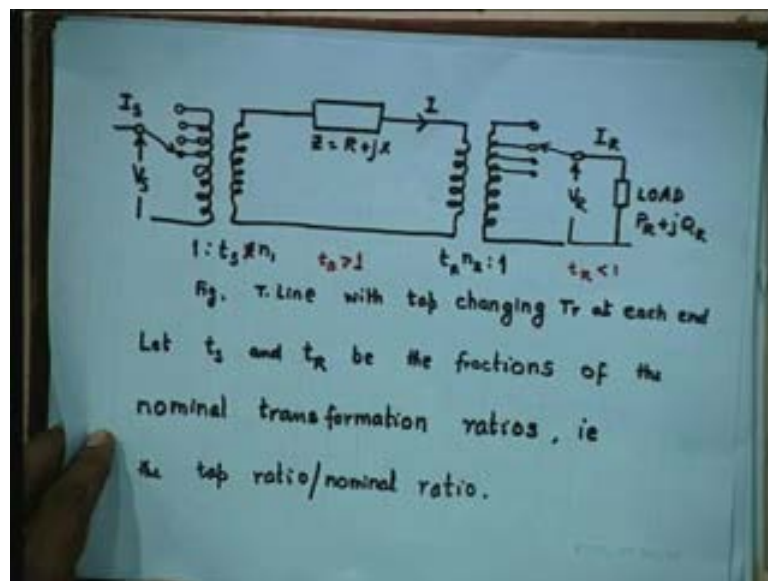 I_s
I
I_R
Z = R + jX
V_s
V_R
LOAD
P_R + jQ_R
1 : t_s n_1
t_s > 1
t_R n_2 : 1
t_R < 1
Fig. T. Line with tap changing Tr at each end
Let t_s and t_R be the fractions of the
nominal transformation ratios, ie
the tap ratio/nominal ratio.